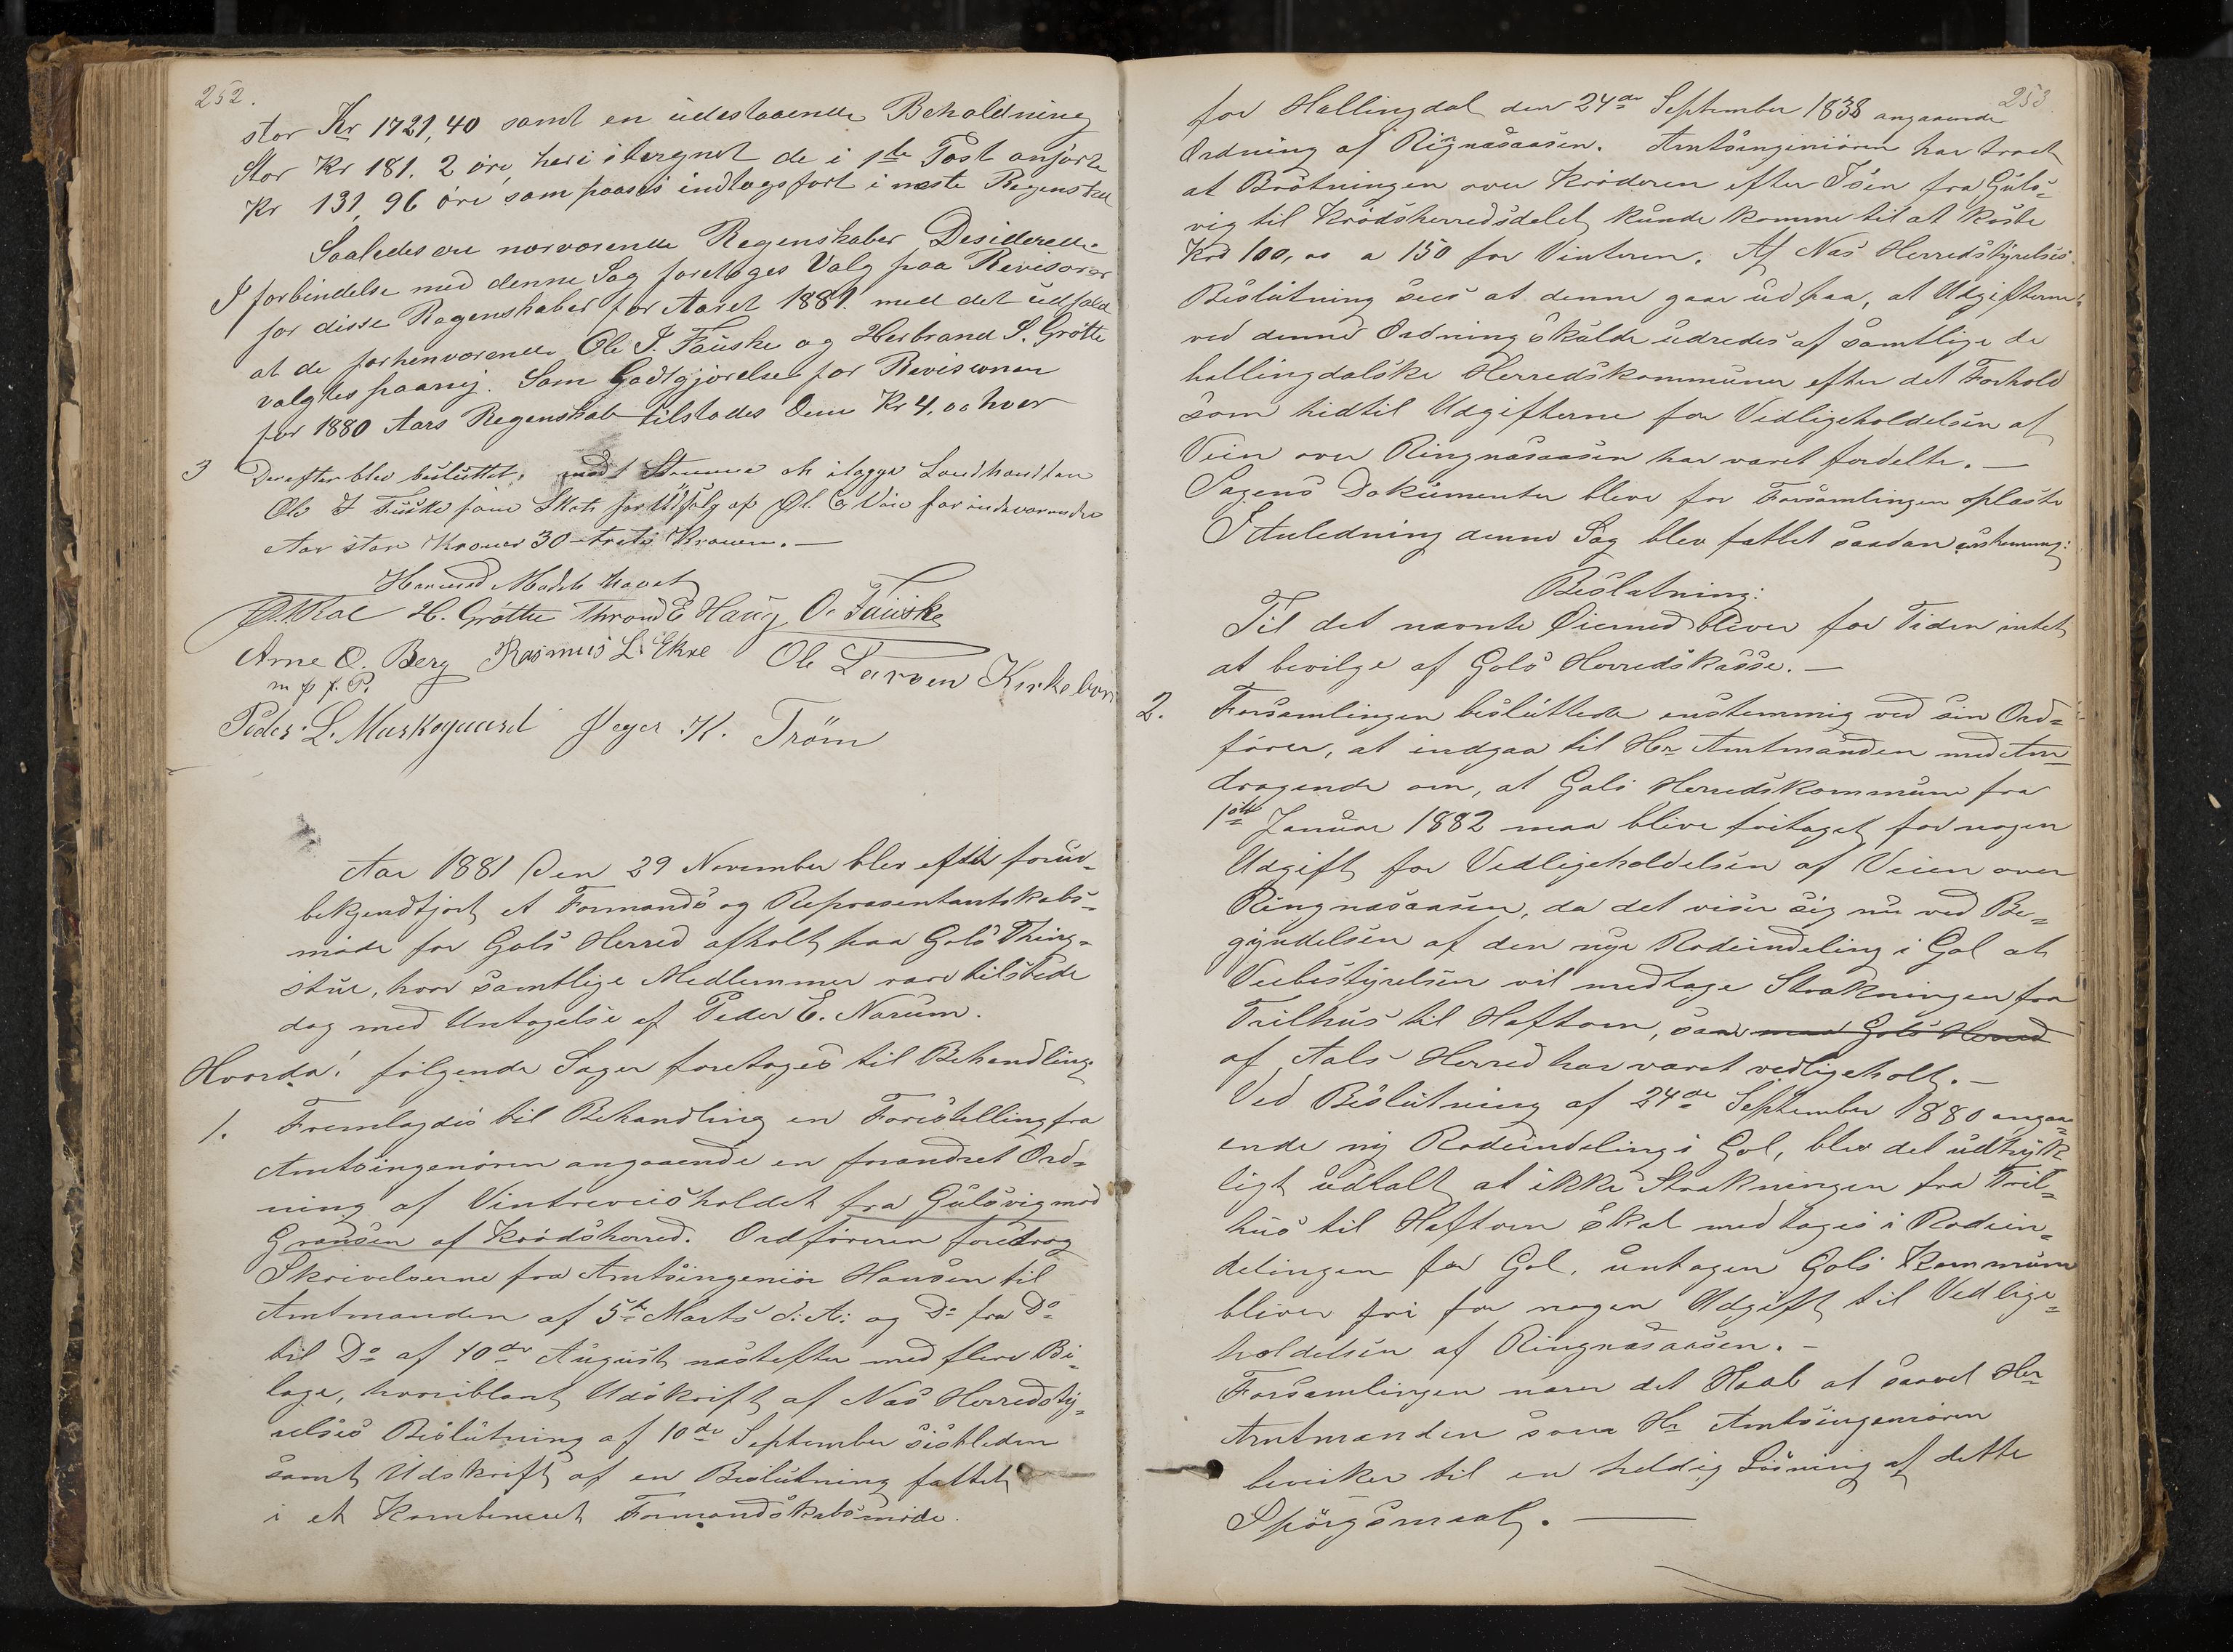 252.
stor Kr 1721,40 samt en udestaaende Beholdning
Stor Kr 181. 2 öre, heri iberegnet de i 1ste Post anförte
Kr 131,96 öre som paasees indtagsfört i næste Regenskab
Saaledes ere nærværende Regenskaber Desiderede
I forbindelse med denne Sag foretoges Valg paa Revisorer
for disse Regenskaber for Aaret 1881. med det udfald
at de forhenværende Ole I. Fauske og Herbrand S. Grötte
valgtes paany. Som Godtgjörelse for Revisionen
for 1880 Aars Regenskab tilstodes dem Kr 4,00 hver
3 Derefter blev besluttet, mod 1 Stemme at ilægge Landhandlan
Ole I Fauske som Skat for Udsalg af Öl & Vin for indeværende
Aar stor Kroner 30 treti Kroner. —
Hermed Mödet hævet
H. Gröttu Thrond E Haug O. Fauske
Arne O. Berg Rasmus L. Ekre Ole Larsen Kirkebön
m p f. P.
Peder L. Muskogaard K. Tröm
Aar 1881 den 29 November blev efter foru=
bekjendtjort et Formands og Repræsentantskabs=
möde for Gols Herred afholt paa Gols Thing=
stue, hvor samtlige Medlemmer vare tilstede
dog med Untagelse af Peder E. Narum.
Hvorda! fölgende Sager foretoges til Behandling
1. Fremlagdes til Behandling en Forestilling fra
Amtsingeniören angaaende en forandret Ord=
ning af Vinterveisholdet fra Gulsvig mod
Grændsen af Krödsherred. Ordföreren foredrog
Skrivelserne fra Amtsingeniör Hansen til
Amtmanden af 5te Marts d: A: og Do fra Do
til Do af 10de August næstefter med flere Bi=
lage, hvoriblant Udskrift af Næs Herredsty=
relses Beslutning af 10de September sistleden
samt Udskrift af en Beslutning fattet
i et Kombeneret Formandskabsmöde.
253
for Hallingdal den 24de September 1838 angaaende
Ordning af Rignæsaasen. Amtsinginiören har troet
at Brötningen over Kröderen efter Isen fra Guls=
vig til Krödsherredsdelet kunde komme til at koste
Krd 100,00 a 150 for Vinteren. Af Næs Herredstyrelses
Beslutning sees at denne gaar ud paa, at Udgifterne
ved denne Ordning skulde udredes af samtlige de
hallingdalske Herredskommuner efter det Forhold
som hidtil Udgifterne for Vedligeholdelsen af
Veien over Ringnæsaasen har været fordelte. —
Sagens Dokumenter bleve for Forsamlingen oplæste
I Anledning denne Sag blev fattet saadan enstemmig:
Beslutning:
Til det nævnte Öiemed bliver for Tiden intet
at bevilge af Gols Herredskasse. —
2. Forsamlingen besluttede enstemmig ved sin Ord=
förer, at indgaa til Hr Amtmanden med An
dragende om, at Gols Herredskommune fra
1ste Januar 1882 maa blive fritaget for nogen
Udgift for Vedligeholdelsen af Veien over
Ringnæsaasen, da det viser sig nu ved Be=
gyndelsen af den nye Rodeindeling i Gol at
Veibestyrelsen vil medtage Strækningen fra
Trilhus til Heftoen, som maa Gols Herred
af Aals Herred har været vedligeholt. —
Ved Beslutning af 24de September 1880 angaa=
ende ny Rodeindeling i Gol, blev det udtryk
ligt udtalt at ikke Strækningen fra Tril=
hus til Heftoen skal medtages i Rodein=
delingen for Gol, untagen Gols Kommune
bliver fri for nogen Udgift til Vedlige=
holdelsen af Ringnæsaasen. —
Forsamlingen nærer det Haab at saavel Her
Amtmanden som Hr Amtsingeniören
bevirker til en heldig Lösning af dette
Spörgsmaal. —